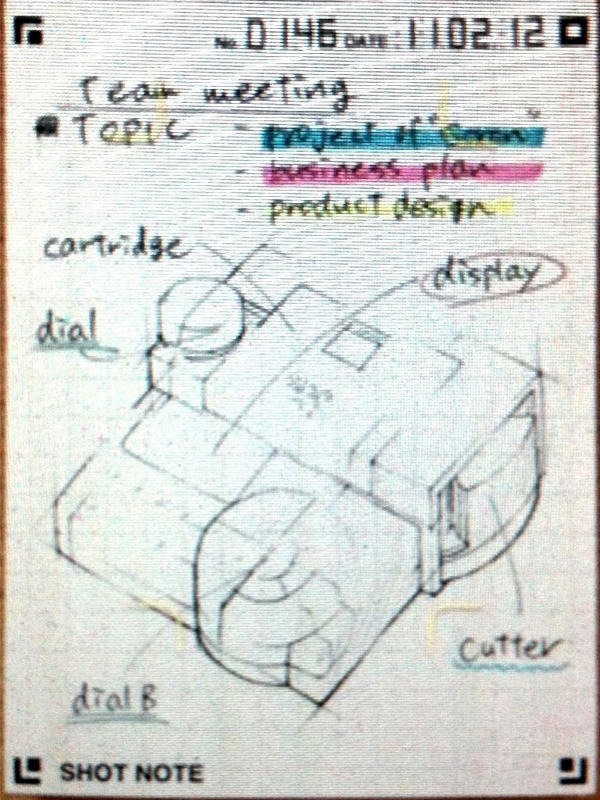 No. 0146 DATE: 11.02.12
Team meeting
TOPIC
- project of "
- business plan
- product design
cartridge
display
dial
cutter
dial B
SHOT NOTE